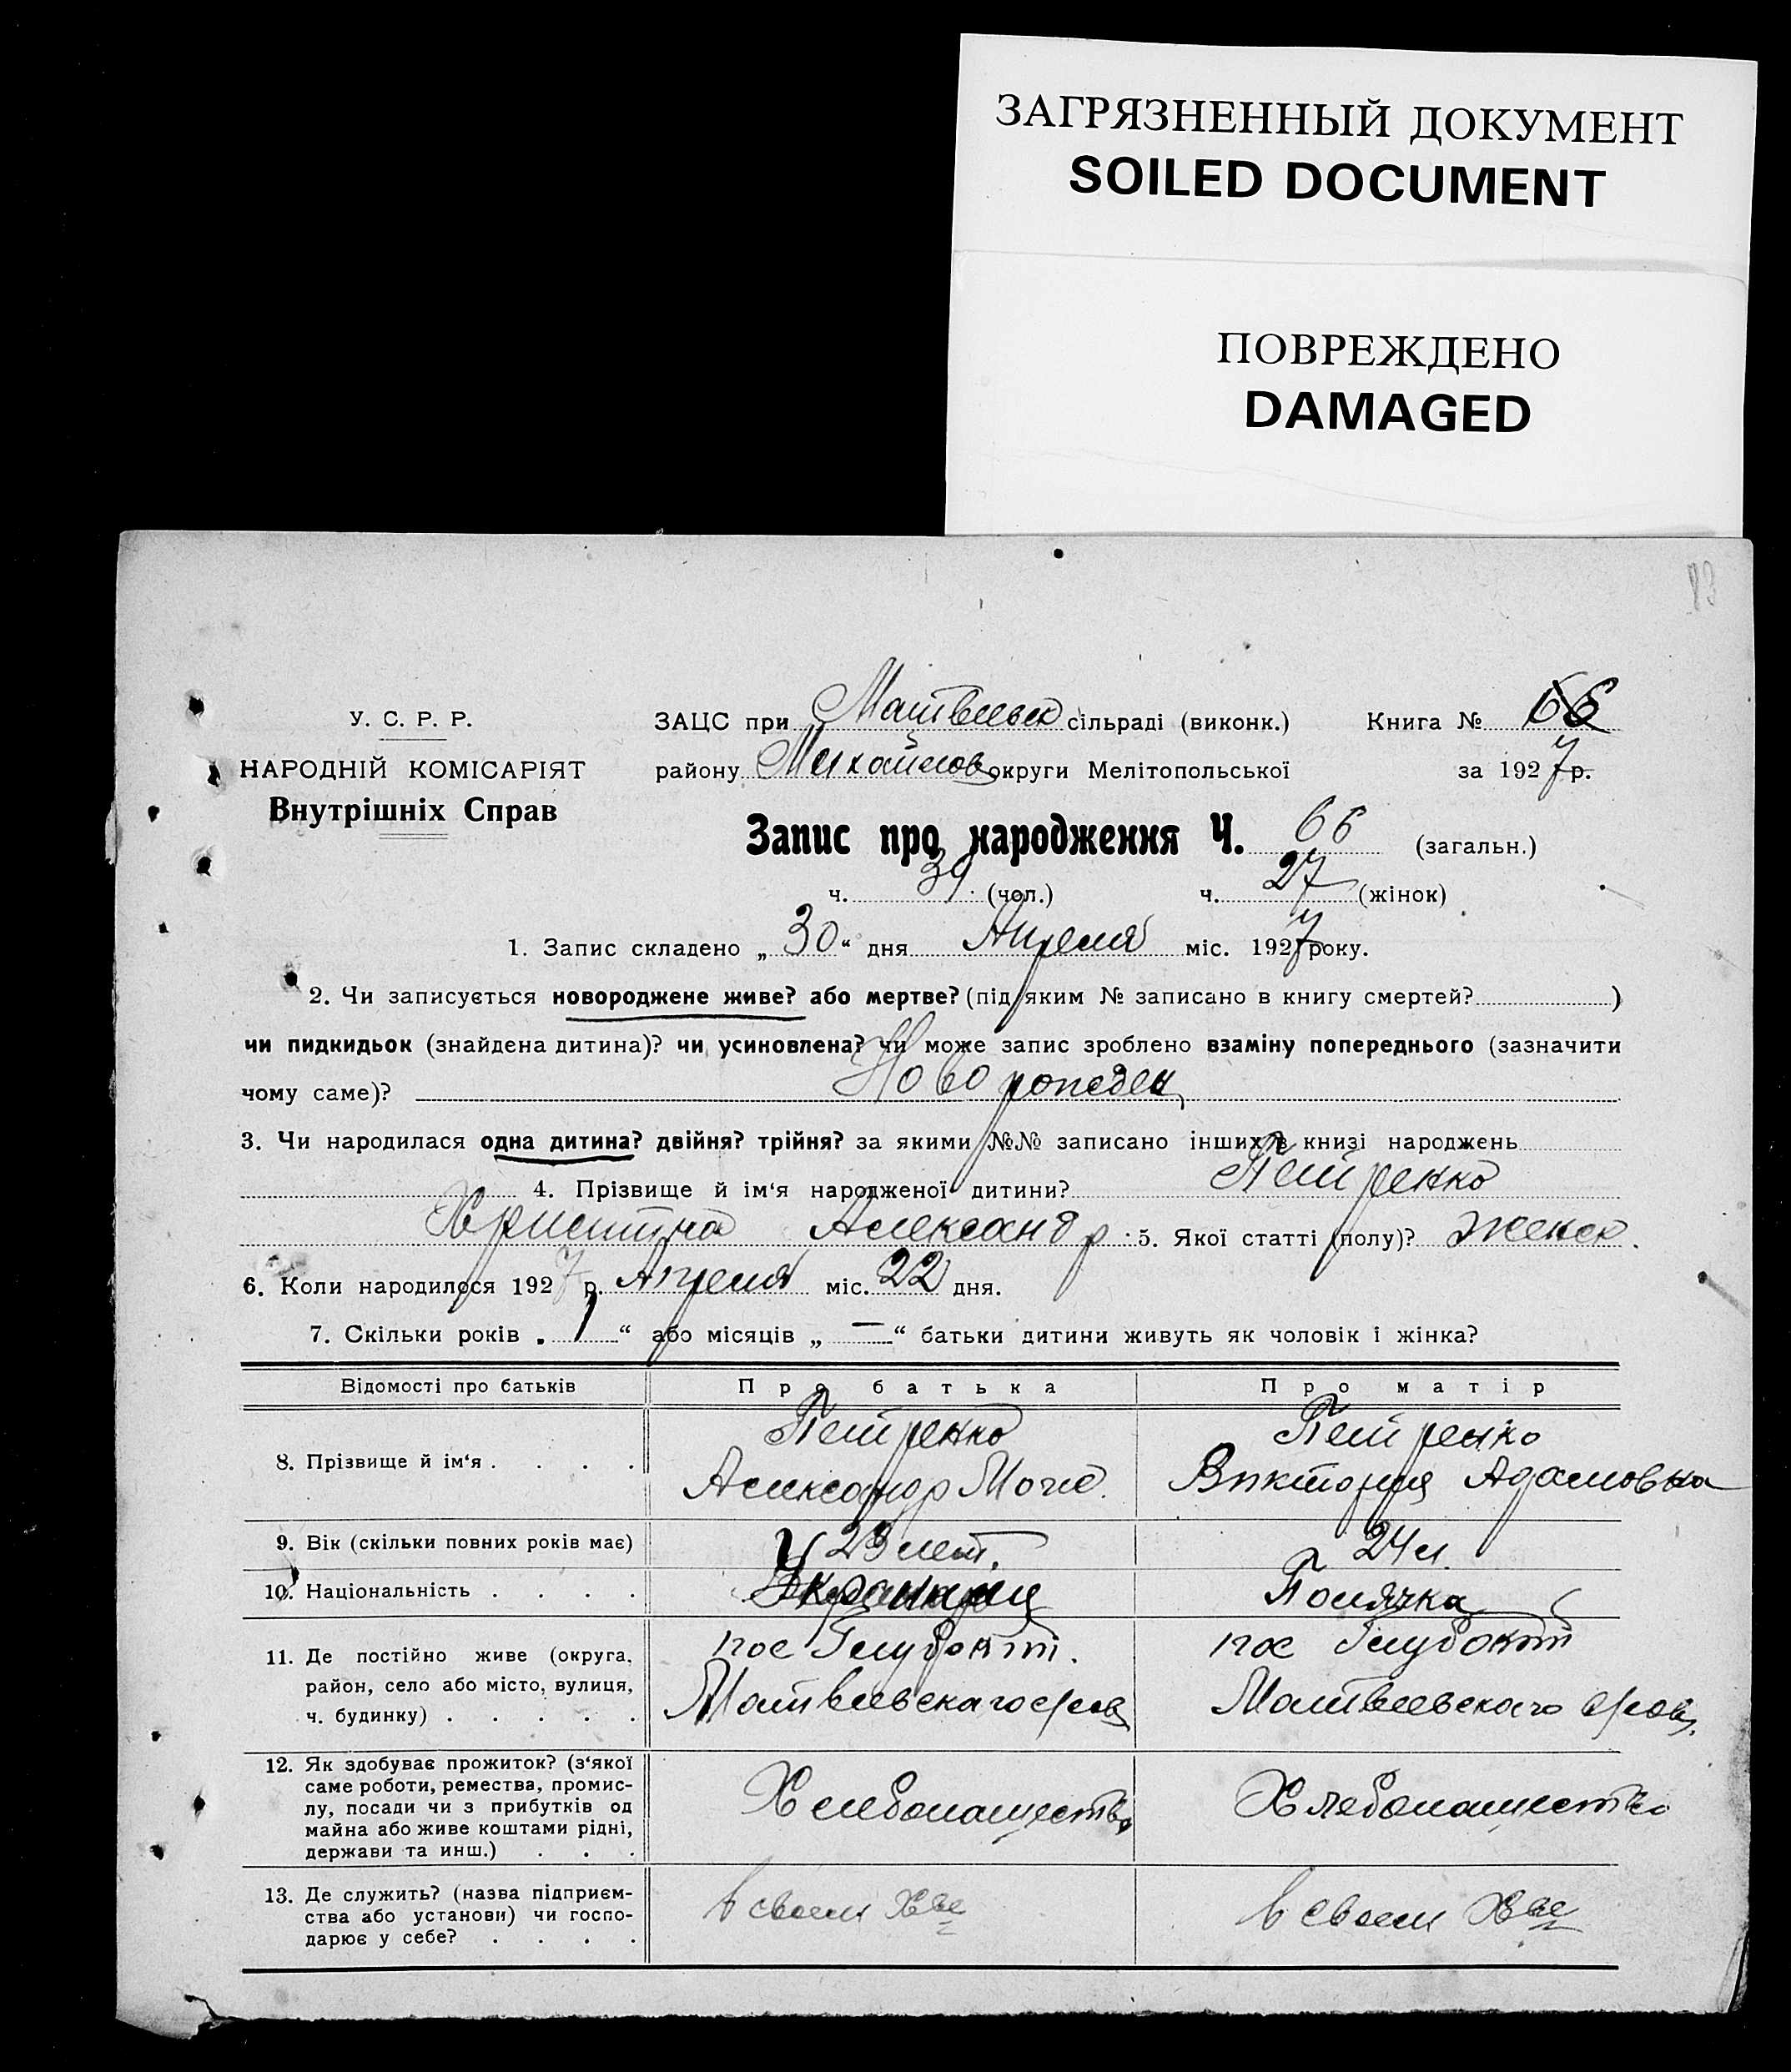 ЗАГРЯЗНЕННЫЙ ДОКУМЕНТ
SOILED DOCUMENT
ПОВРЕЖДЕНО
DAMAGED
83
У. С. Р. Р.
НАРОДНІЙ КОМІСАРІЯТ
Внутрішніх Справ
ЗАЦС при Матвеевск сільраді (виконк.) Книга № 66
району Михайлов округи Мелітопольської за 1927 р.
Запис про народження Ч. 66 (загальн.)
ч. 39 (чол.) ч. 27 (жінок)
1. Запис складено „ 30 “ дня Апреля міс. 1927 року.
2. Чи записується новороджене живе? або мертве? (під яким № записано в книгу смертей? )
чи пидкидьок (знайдена дитина)? чи усиновлена? чи може запис зроблено взаміну попереднього (зазначити
чому саме)? Новорожден
3. Чи народилася одна дитина? двійня? трійня? за якими №№ записано інших в книзі народжень
4. Прізвище й ім‘я народженої дитини? Петренко
Христина Александр. 5. Якої статті (полу)? женск.
6. Коли народилося 1927 р. Апреля міс. 22 дня.
7. Скільки років „ 1 “ або місяців „ — “ батьки дитини живуть як чоловік і жінка?
Відомості про батьків Про батька Про матір
8. Прізвище й ім‘я . . . . Петренко Петренко
Александр Виктория Адамовна
9. Вік (скільки повних років має) 23 лет. 24 л.
10. Національність . . . . Украинец Полячка
11. Де постійно живе (округа, пос Глубокт. пос Глубокт
район, село або місто, вулиця, Матвеевскаго Матвеевскаго
ч. будинку) . . . . .
12. Як здобуває прожиток? (з‘якої
саме роботи, ремества, промис-
лу, посади чи з прибутків од Хлебопашество Хлебопашество
майна або живе коштами рідні,
держави та инш.) . . .
13. Де служить? (назва підприєм- в своем Хве в своем Хве
ства або установи) чи госпо-
дарює у себе? . . . .